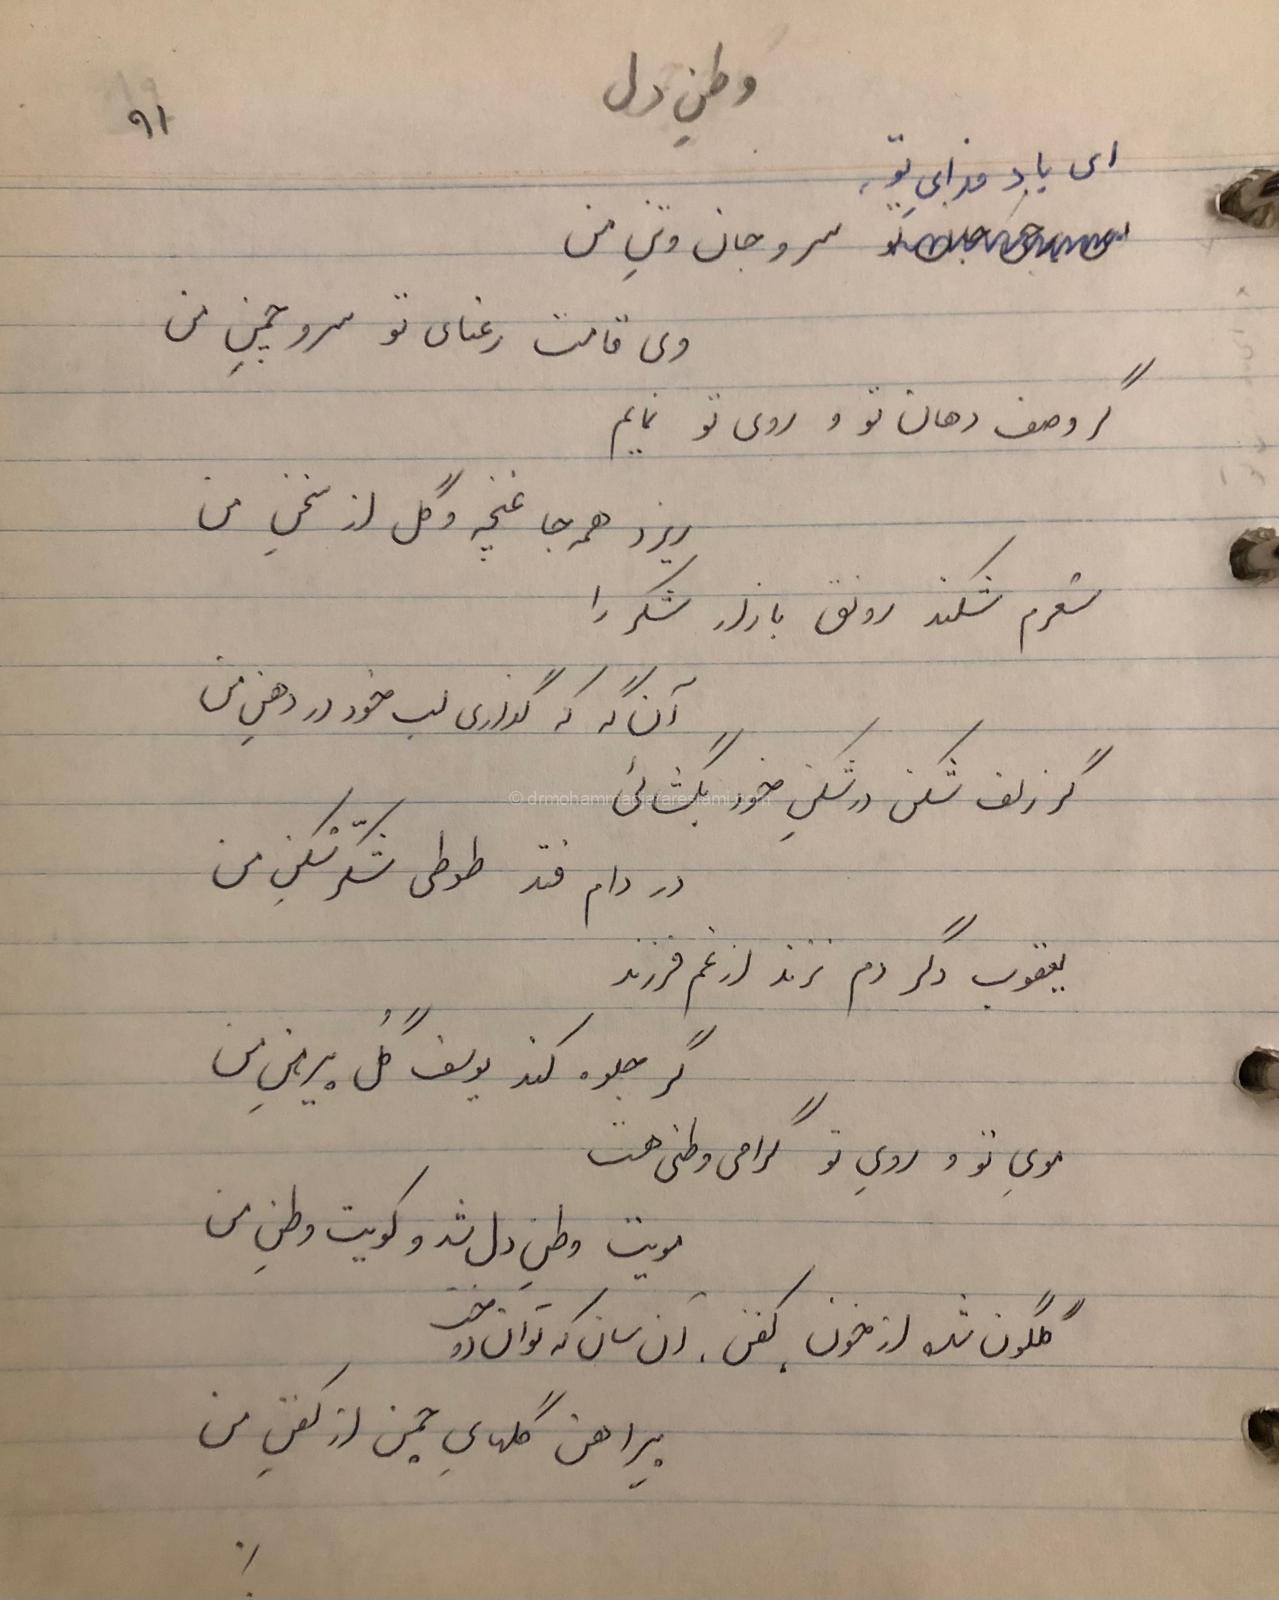 وطنِ دل
۹۱
ای باد فدایِ تو،
تو سر و جان و تنِ من
وی قامت رعنای تو سرو چمنِ من
گر وصف دهان تو و روی تو نمایم
ریزد همه جا غنچه و گل از سخنِ من
شعرم شکند رونق بازار شکر را
آن گه که گذاری لب خود در دهنِ من
گر زلف شکن در شکنِ خود بگشائی
© drmohammadjafareslami.com
در دام فتد طوطی شکّر شکنِ من
یعقوب دگر دم نزند از غم فرزند
گر جلوه کند یوسف گُل پیرهنِ من
مویِ تو و رویِ تو گرامی وطنی هست
مویت وطنِ دل شد و کویت وطنِ من
گلگون شده از خون، کفن، آن سان که توان دوخت
پیراهن گلهایِ چمن از کفنِ من